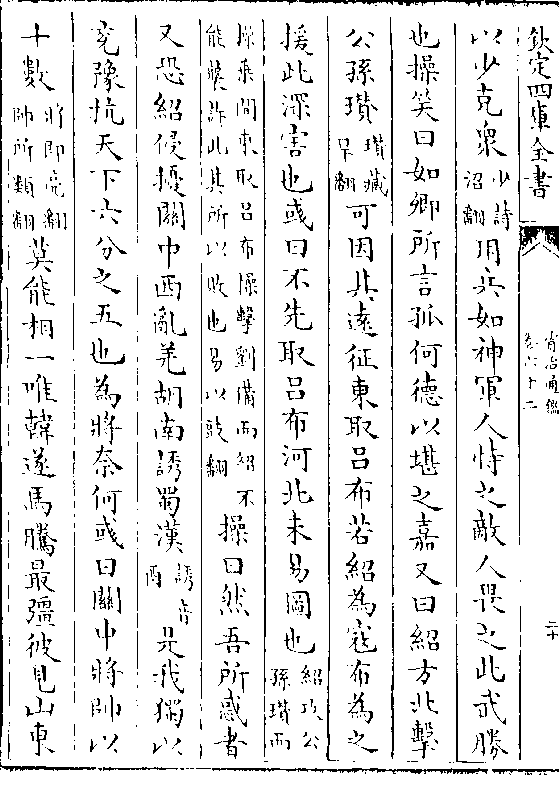 欽定四庫全書
資治通鑑
卷六十二
二十
以少克衆少詩沼翻用兵如神軍人恃之敵人畏之此武勝
也操笑曰如卿所言孤何德以堪之嘉又曰紹方北擊
公孫瓚瓚藏旱翻可因其遠征東取吕布若紹為寇布為之
援此深害也彧曰不先取吕布河北未易圖也紹攻公孫瓚而
操乘間東取吕布操擊劉備而紹不能襲許此其所以敗也易以豉翻操曰然吾所惑者
又恐紹侵擾關中西亂羌胡南誘蜀漢誘音酉是我獨以
兖豫抗天下六分之五也為將奈何彧曰關中將帥以
十數將即亮翻帥所類翻莫能相一唯韓遂馬騰最彊彼見山東